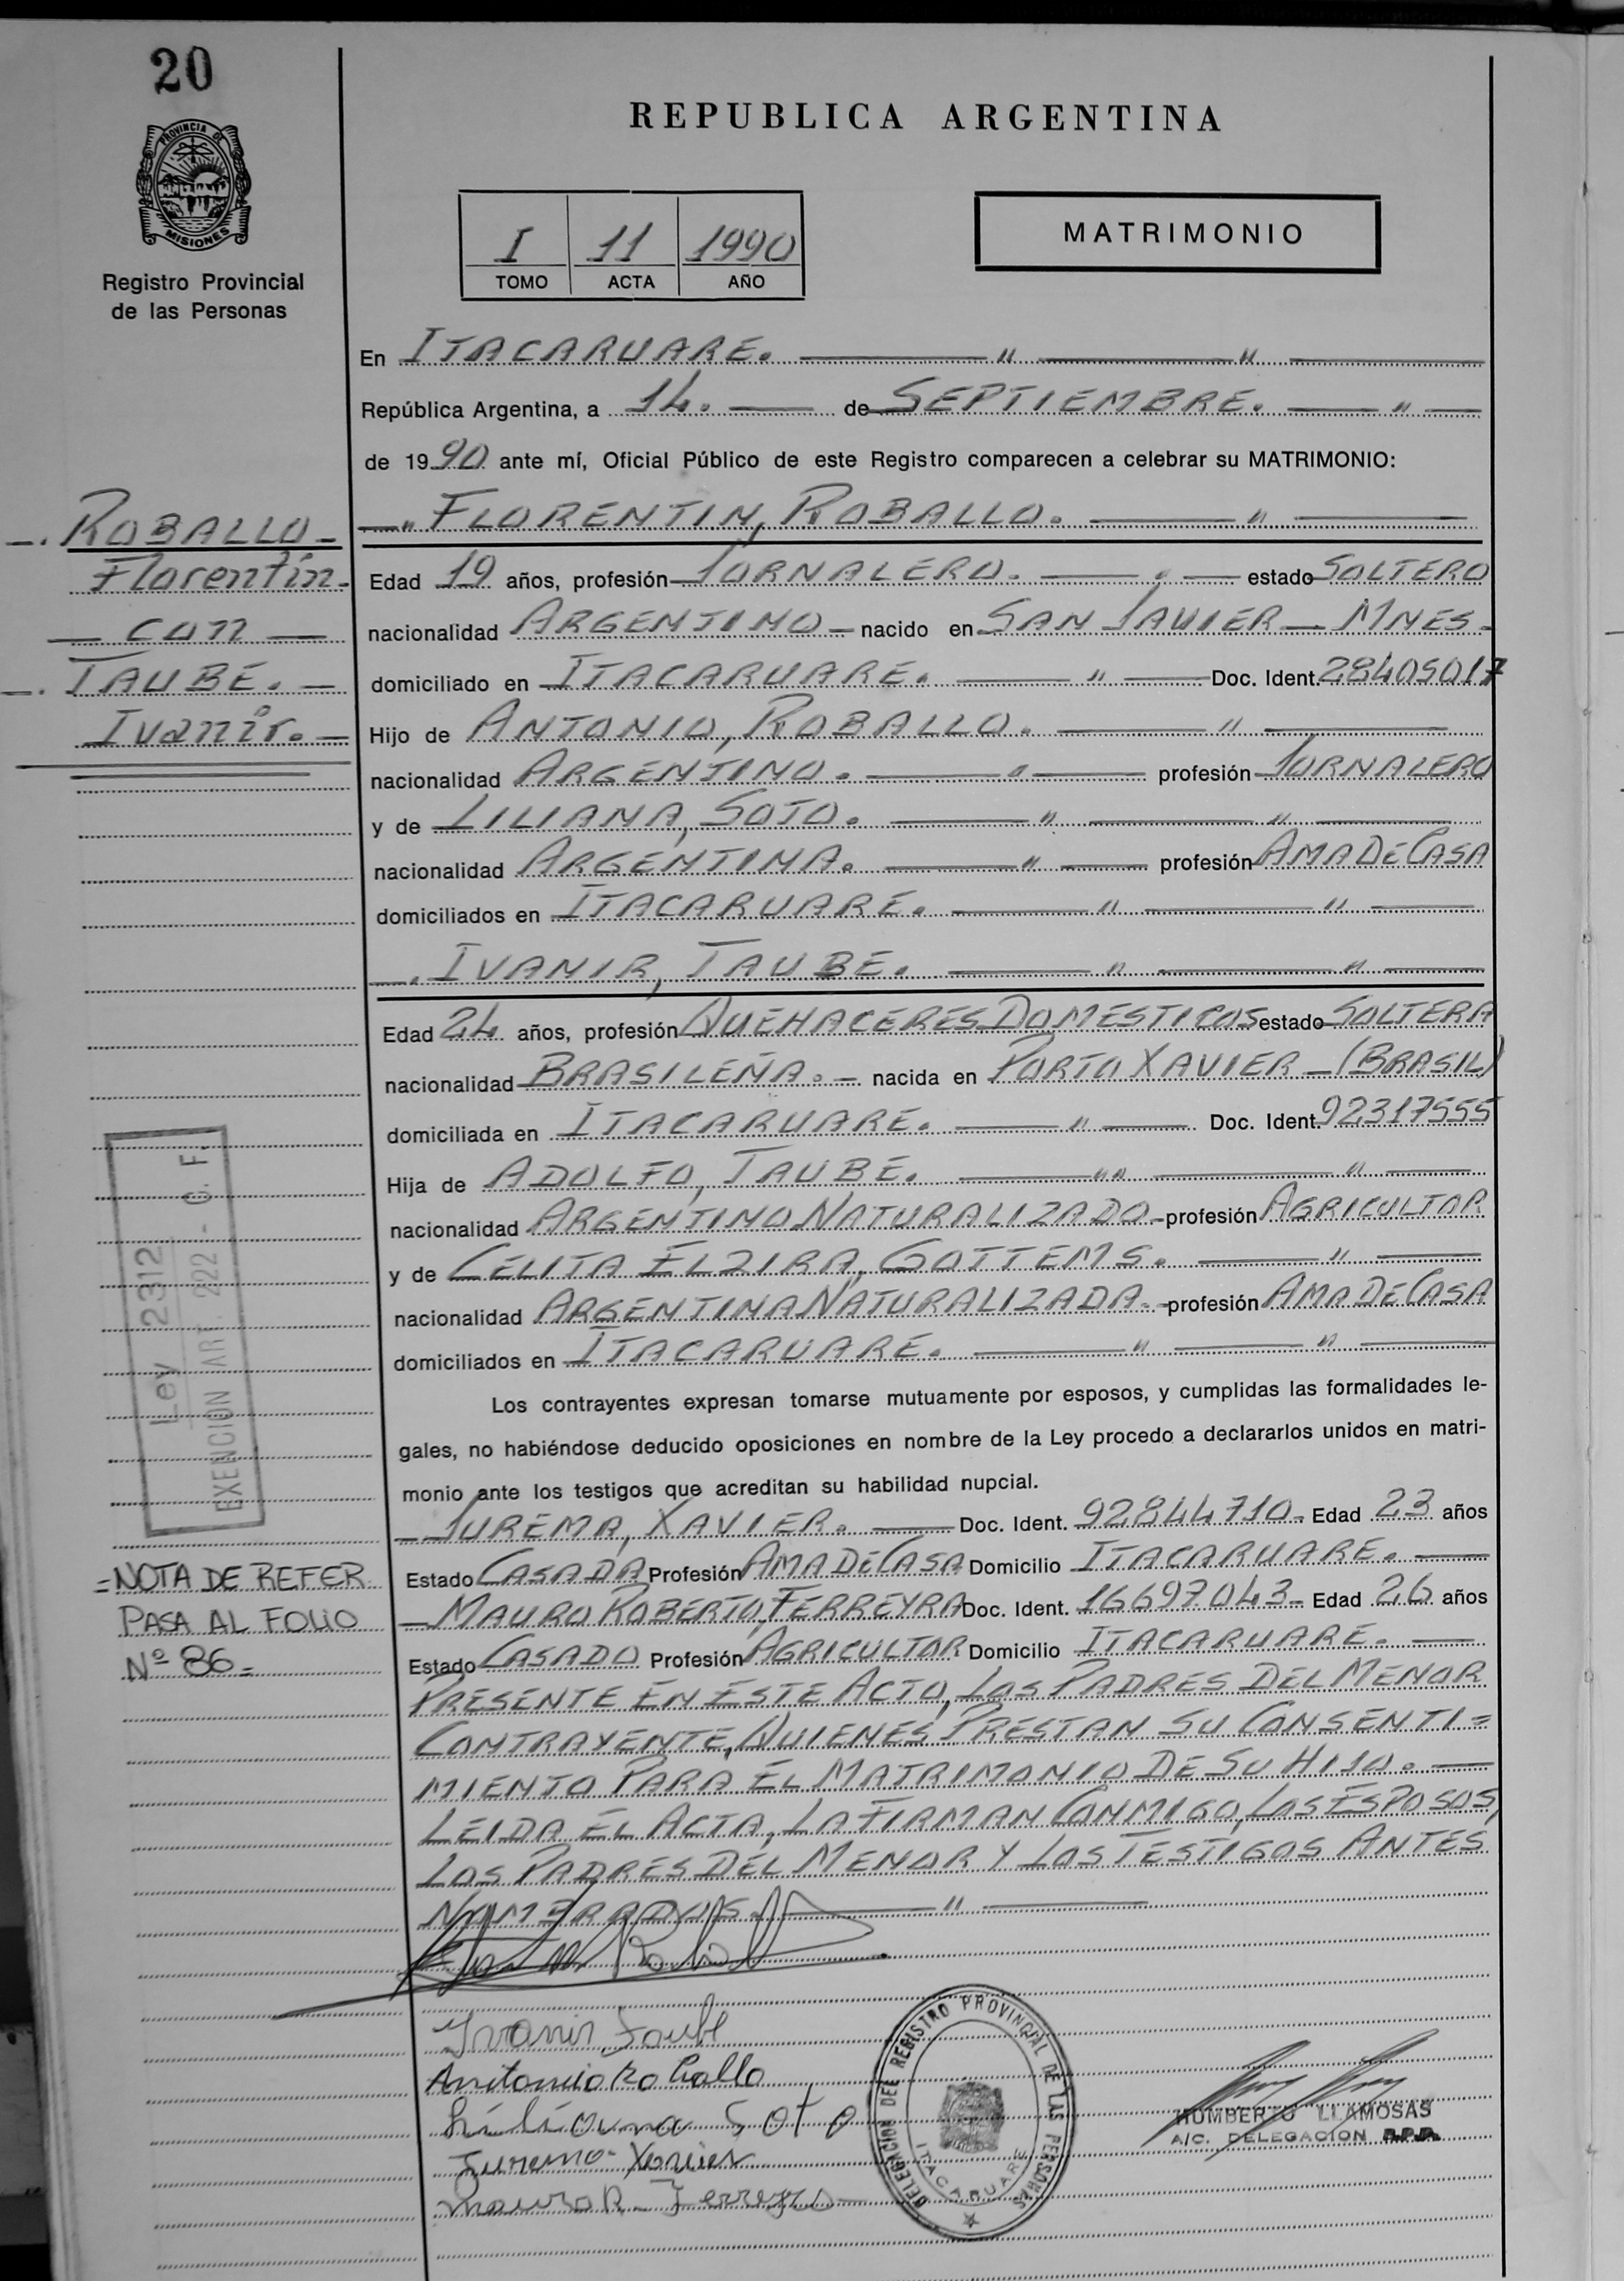 20
PROVINCIA DE
MISIONES
Registro Provincial
de las Personas
REPUBLICA ARGENTINA
I 11 1990
TOMO ACTA AÑO
MATRIMONIO
En ITACARUARE. — " — " —
República Argentina, a 14. — de SEPTIEMBRE. — " —
de 1990 ante mí, Oficial Público de este Registro comparecen a celebrar su MATRIMONIO:
—. ROBALLO —
Florentín —
— con —
—. TAUBE. —
Ivanir. —
—" FLORENTIN, ROBALLO. — " —
Edad 19 años, profesión JORNALERO. — " — estado SOLTERO
nacionalidad ARGENTINO — nacido en SAN JAVIER — MNES —
domiciliado en ITACARUARE. — " — Doc. Ident. 28405017
Hijo de ANTONIO, ROBALLO. — " —
nacionalidad ARGENTINO. — " — profesión JORNALERO
y de LILIANA, SOTO. — " — " —
nacionalidad ARGENTINA. — " — profesión AMA DE CASA
domiciliados en ITACARUARE. — " — " —
—. IVANIR, TAUBE. — " — " —
Edad 24 años, profesión QUEHACERES DOMESTICOS estado SOLTERA
nacionalidad BRASILEÑA. — nacida en PORTO XAVIER — (BRASIL)
domiciliada en ITACARUARE. — " — Doc. Ident. 92317555
Hija de ADOLFO, TAUBE. — " — " —
nacionalidad ARGENTINO NATURALIZADO — profesión AGRICULTOR
y de CELITA ELZIRA, GOTTEMS. — " —
nacionalidad ARGENTINA NATURALIZADA — profesión AMA DE CASA
domiciliados en ITACARUARE. — " — " —
Los contrayentes expresan tomarse mutuamente por esposos, y cumplidas las formalidades le-
gales, no habiéndose deducido oposiciones en nombre de la Ley procedo a declararlos unidos en matri-
monio ante los testigos que acreditan su habilidad nupcial.
— JUREMA, XAVIER. — Doc. Ident. 92844710 — Edad 23 años
Estado CASADA Profesión AMA DE CASA Domicilio ITACARUARE. —
— MAURO ROBERTO, FERREYRA Doc. Ident. 16697043 — Edad 26 años
Estado CASADO Profesión AGRICULTOR Domicilio ITACARUARE. —
PRESENTE EN ESTE ACTO, LOS PADRES DEL MENOR
CONTRAYENTE, QUIENES PRESTAN SU CONSENTI=
MIENTO PARA EL MATRIMONIO DE SU HIJO. —
LEIDA EL ACTA, LA FIRMAN CONMIGO, LOS ESPOSOS,
LOS PADRES DEL MENOR Y LOS TESTIGOS ANTES
NOMBRADOS. — " —
Ley 2312
EXENCION ART. 222 - C. F.
=NOTA DE REFER
PASA AL FOLIO
Nº 86=
Ivanir Taube
Antonio Roballo
Liliana Soto
Jurema Xavier
Mauro R. Ferreyra
DELEGACION DEL REGISTRO PROVINCIAL DE LAS PERSONAS
ITACARUARE
HUMBERTO LLAMOSAS
A/C. DELEGACION R.P.P.